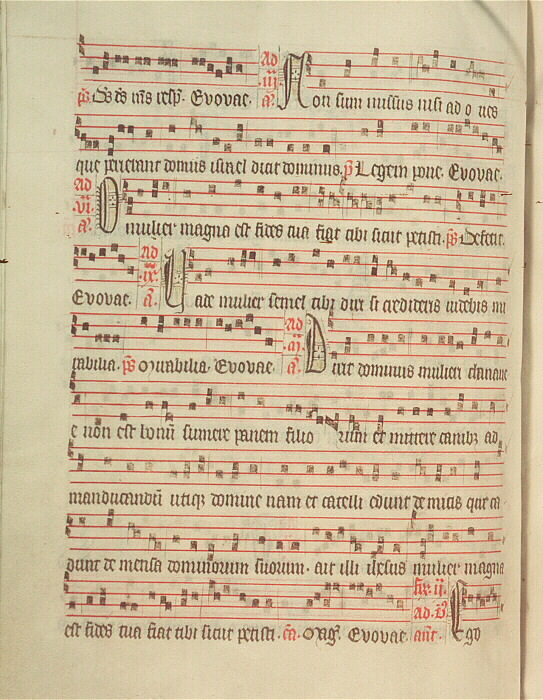 ps. Ad
iij
a. Non sum missus nisi ad oues
que perierant domus israel dicit dominus. ps Legem pone. Evovae.
Ad
vi.
a. O mulier magna est fides tua fiat tibi sicut petisti. ps Defecit.
Evovae. Ad
ix.
a. Vade mulier semel tibi dixi si credideris videbis mi
rabilia. ps Mirabilia. Evovae. Ad
a. Dixit dominus mulieri chanane
e non est bonum sumere panem filio rum et mittere canibus ad
manducandum utique domine nam et catelli edunt de micis que ca
dunt de mensa dominorum suorum. ait illi ihesus mulier magna
est fides tua fiat tibi sicut petisti. Mag. Evovae. fer. ij.
ad
ant. Ego